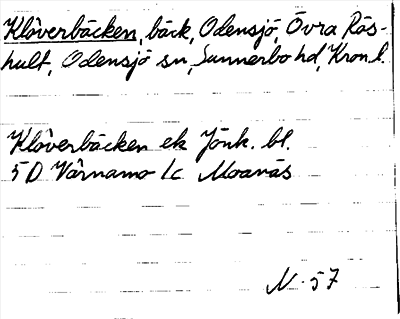 Klöverbäcken, bäck, Odensjö, Övra Rös-
hult, Odensjö sn, Sunnerbo hd, Kron. l.
Klöverbäcken ek Jönk. bl.
5D Värnamo 1c Moanäs
N. 57